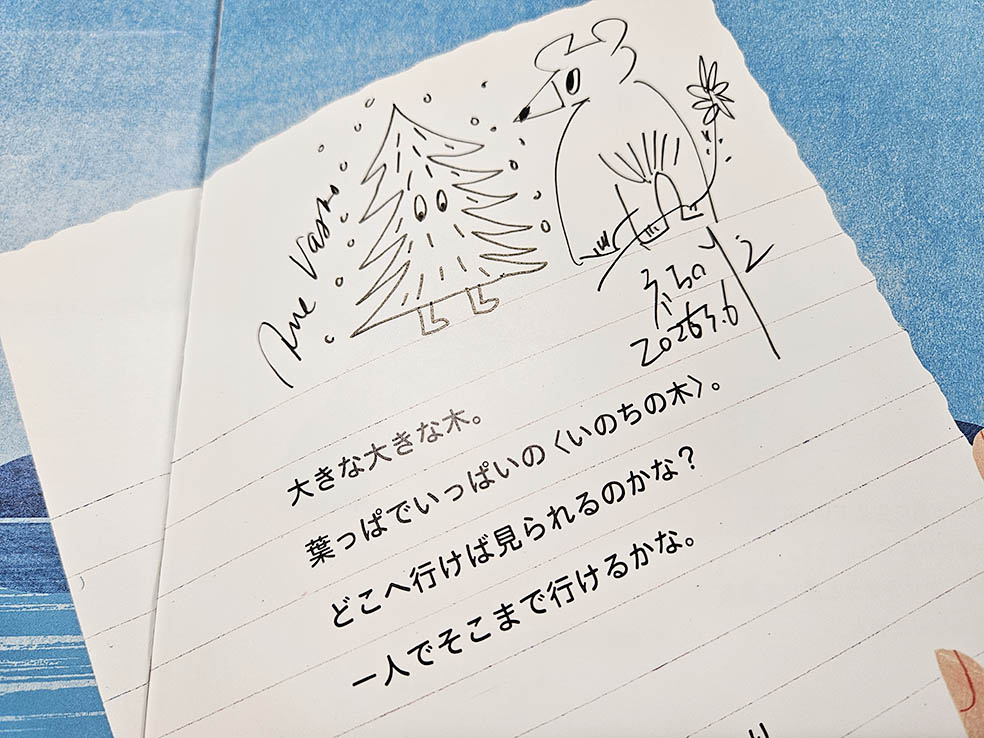 Ane Vasko
2026 3.6
大きな大きな木。
葉っぱでいっぱいの〈いのちの木〉。
どこへ行けば見られるのかな？
一人でそこまで行けるかな。